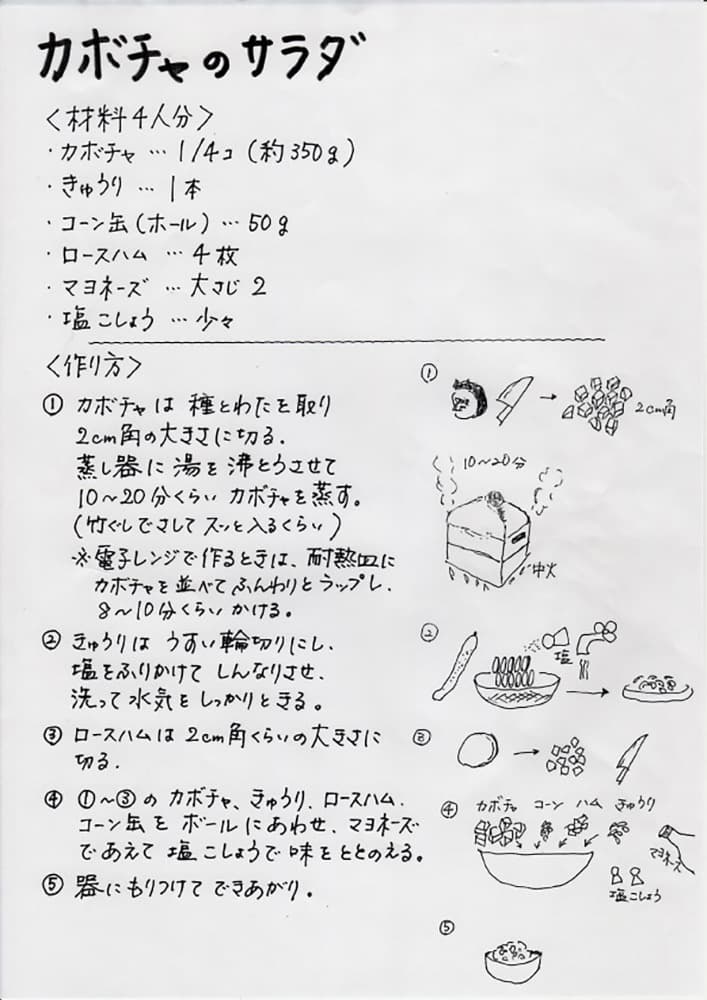 カボチャのサラダ
〈材料4人分〉
・カボチャ…1/4コ(約350g)
・きゅうり…1本
・コーン缶(ホール)…50g
・ロースハム…4枚
・マヨネーズ…大さじ2
・塩こしょう…少々
〈作り方〉
① カボチャは種とわたを取り
2cm角の大きさに切る.
蒸し器に湯を沸とうさせて
10〜20分くらいカボチャを蒸す。
(竹ぐしでさしてスッと入るくらい)
※電子レンジで作るときは、耐熱皿に
カボチャを並べてふんわりとラップし、
8〜10分くらいかける。
② きゅうりはうすい輪切りにし、
塩をふりかけてしんなりさせ、
洗って水気をしっかりときる。
③ ロースハムは2cm角くらいの大きさに
切る.
④ ①〜③のカボチャ、きゅうり、ロースハム、
コーン缶をボールにあわせ、マヨネーズ
であえて塩こしょうで味をととのえる。
⑤ 器にもりつけてできあがり。
①
2cm角
10〜20分
中火
②
塩
③
④
カボチャ コーン ハム きゅうり
マヨネーズ
塩こしょう
⑤